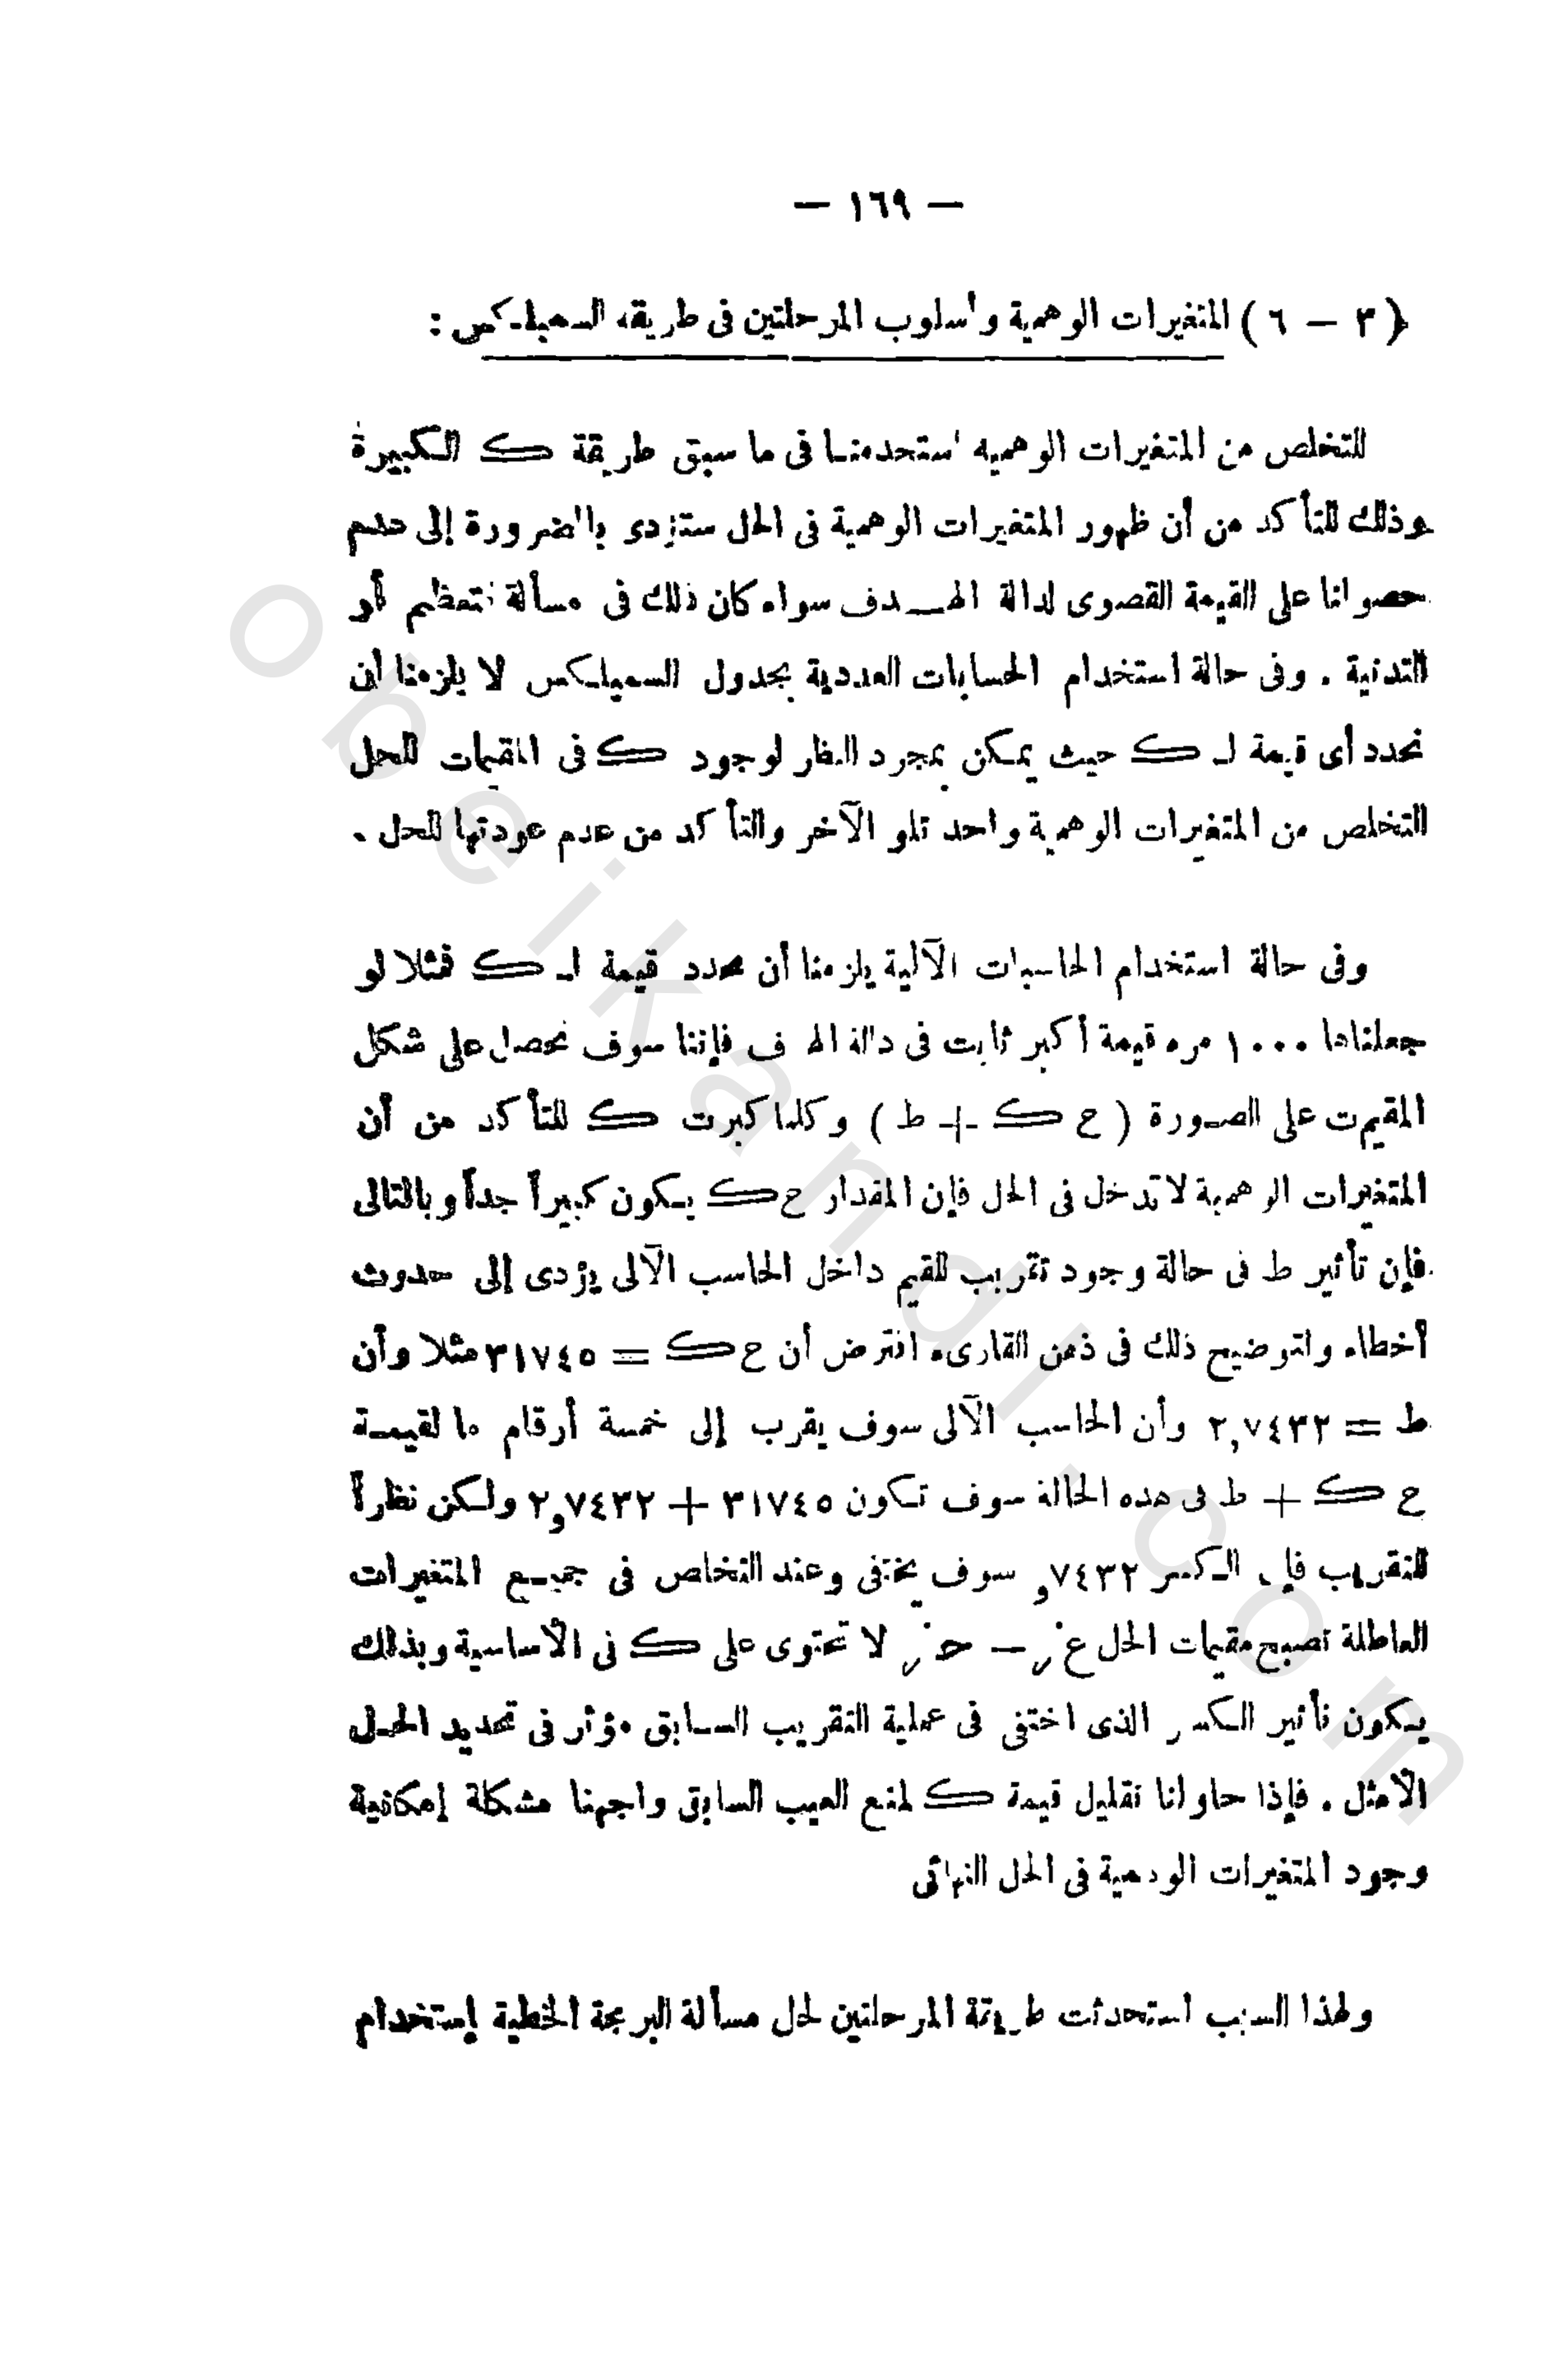 — ١٦٩ —
(٣ – ٦) المتغيرات الوهمية وأسلوب المرحلتين فى طريقة السمبلكس :
للتخلص من المتغيرات الوهمية استخدمنا فى ما سبق طريقة ك الكبيرة
وذلك للتأكد من أن ظهور المتغيرات الوهمية فى الحل ستؤدى بالضرورة إلى عدم
حصولنا على القيمة القصوى لدالة الهدف سواء كان ذلك فى مسألة التعظيم أو
التدنية . وفى حالة استخدام الحسابات العددية بجدول السمبلكس لا يلزمنا أن
نحدد أى قيمة لـ ك حيث يمكن بمجرد النظر لوجود ك فى المقيمات للحل
التخلص من المتغيرات الوهمية واحد تلو الآخر والتأكد من عدم عودتها للحل .
وفى حالة استخدام الحاسبات الآلية يلزمنا أن نحدد قيمة لـ ك فمثلا لو
جعلناها ١٠٠٠ مره قيمة أكبر ثابت فى دالة الهدف فإننا سوف نحصل على شكل
المقيمات على الصورة ( ح ك + ط ) وكلما كبرت ك للتأكد من أن
المتغيرات الوهمية لا تدخل فى الحل فإن المقدار ح ك يكون كبيراً جداً وبالتالى
فإن تأثير ط فى حالة وجود تقريب للقيم داخل الحاسب الآلى يؤدى إلى حدوث
أخطاء ولتوضيح ذلك فى ذهن القارىء افترض أن ح ك = ٣١٧٤٥ مثلا وأن
ط = ٢,٧٤٣٢ وأن الحاسب الآلى سوف يقرب إلى خمسة أرقام فالقيمة
ح ك + ط فى هذه الحالة سوف تكون ٣١٧٤٥ + ٢,٧٤٣٢ ولكن نظراً
للتقريب فإن الكسر ٧٤٣٢, سوف يختفى وعند التخلص فى جميع المتغيرات
العاطلة تصبح مقيمات الحل ع ر – ح ر لا تحتوى على ك فى الأساسية وبذلك
يكون تأثير الكسر الذى اختفى فى عملية التقريب السابق مؤثر فى تحديد الحل
الأمثل . فإذا حاولنا تقليل قيمة ك لمنع العيب السابق واجهنا مشكلة إمكانية
وجود المتغيرات الوهمية فى الحل النهائى
ولهذا السبب استحدثت طريقة المرحلتين لحل مسألة البرمجة الخطية إستخدام
obeikandl.com